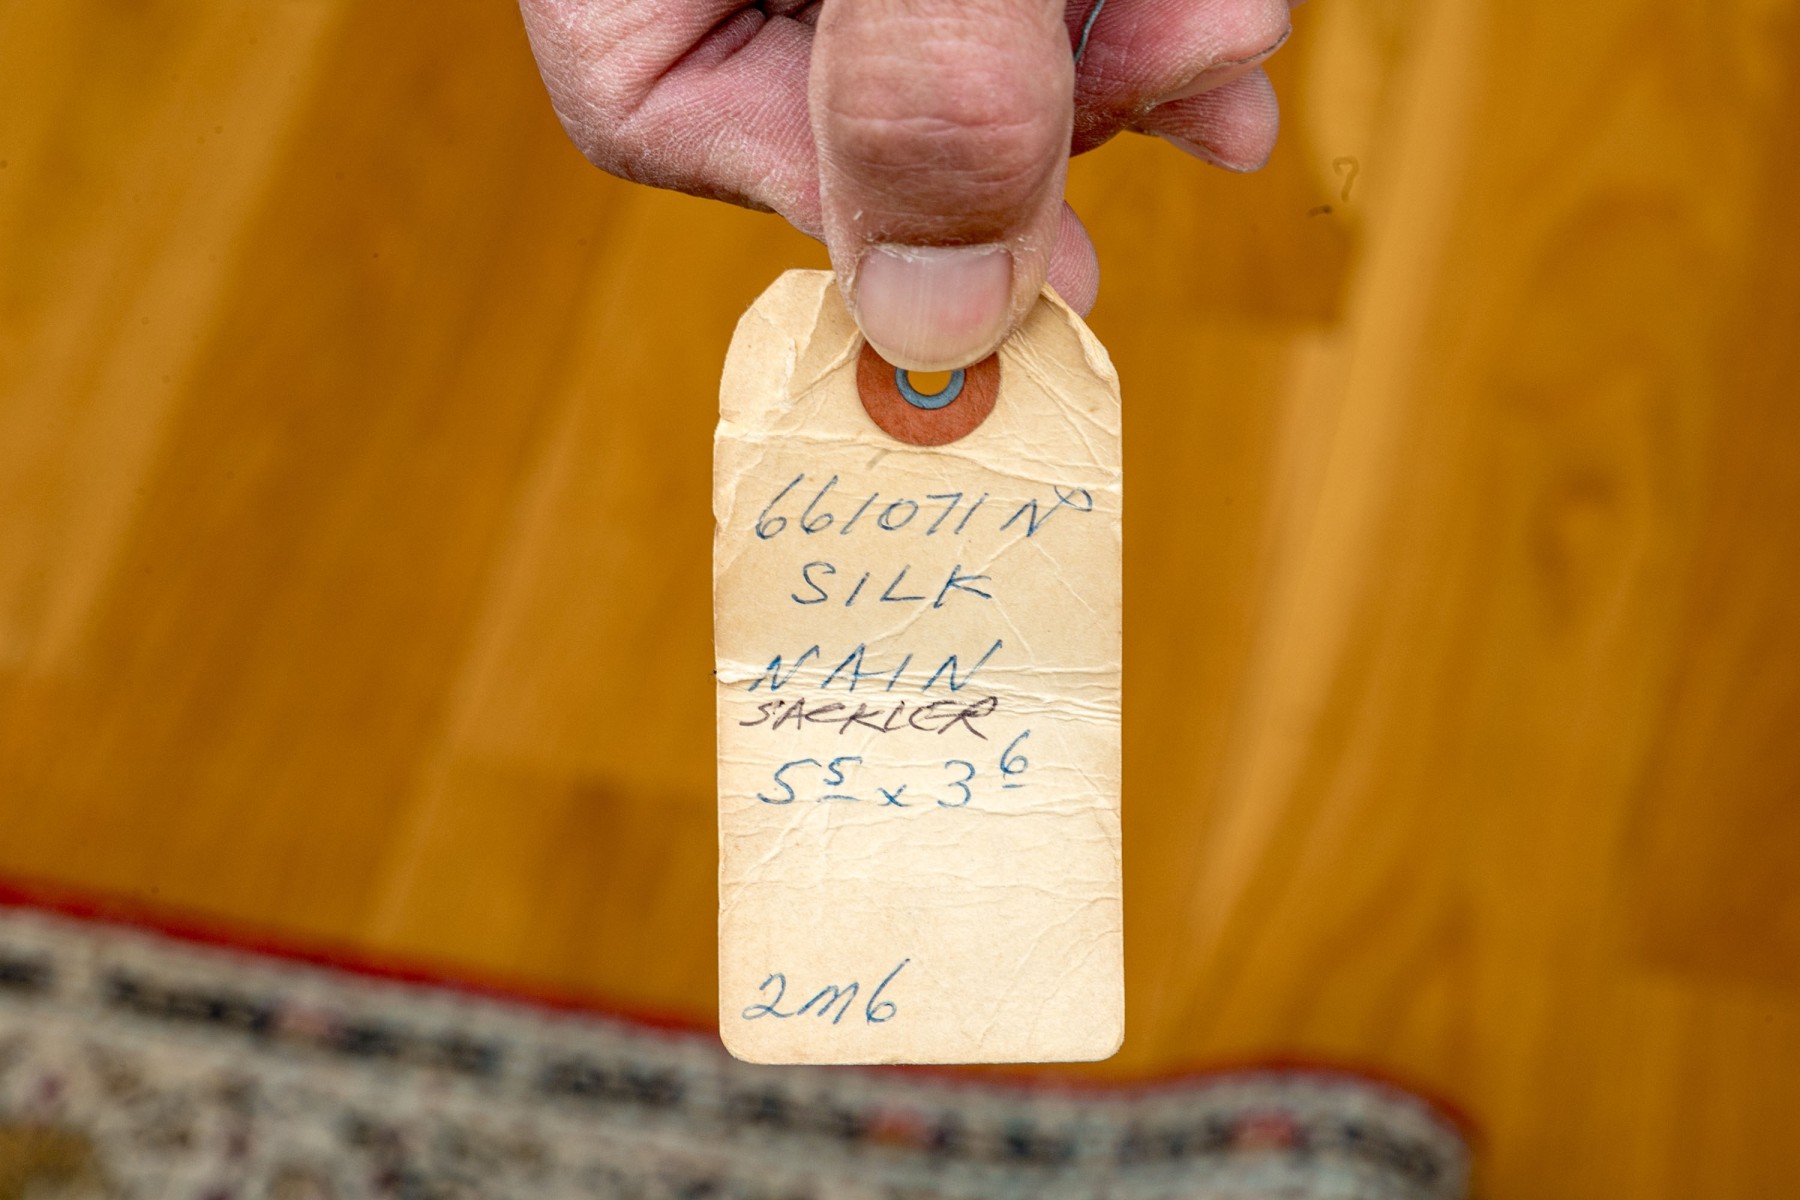 661071 NP
SILK
NAIN
SACKLER
5 5 x 3 6
2M6